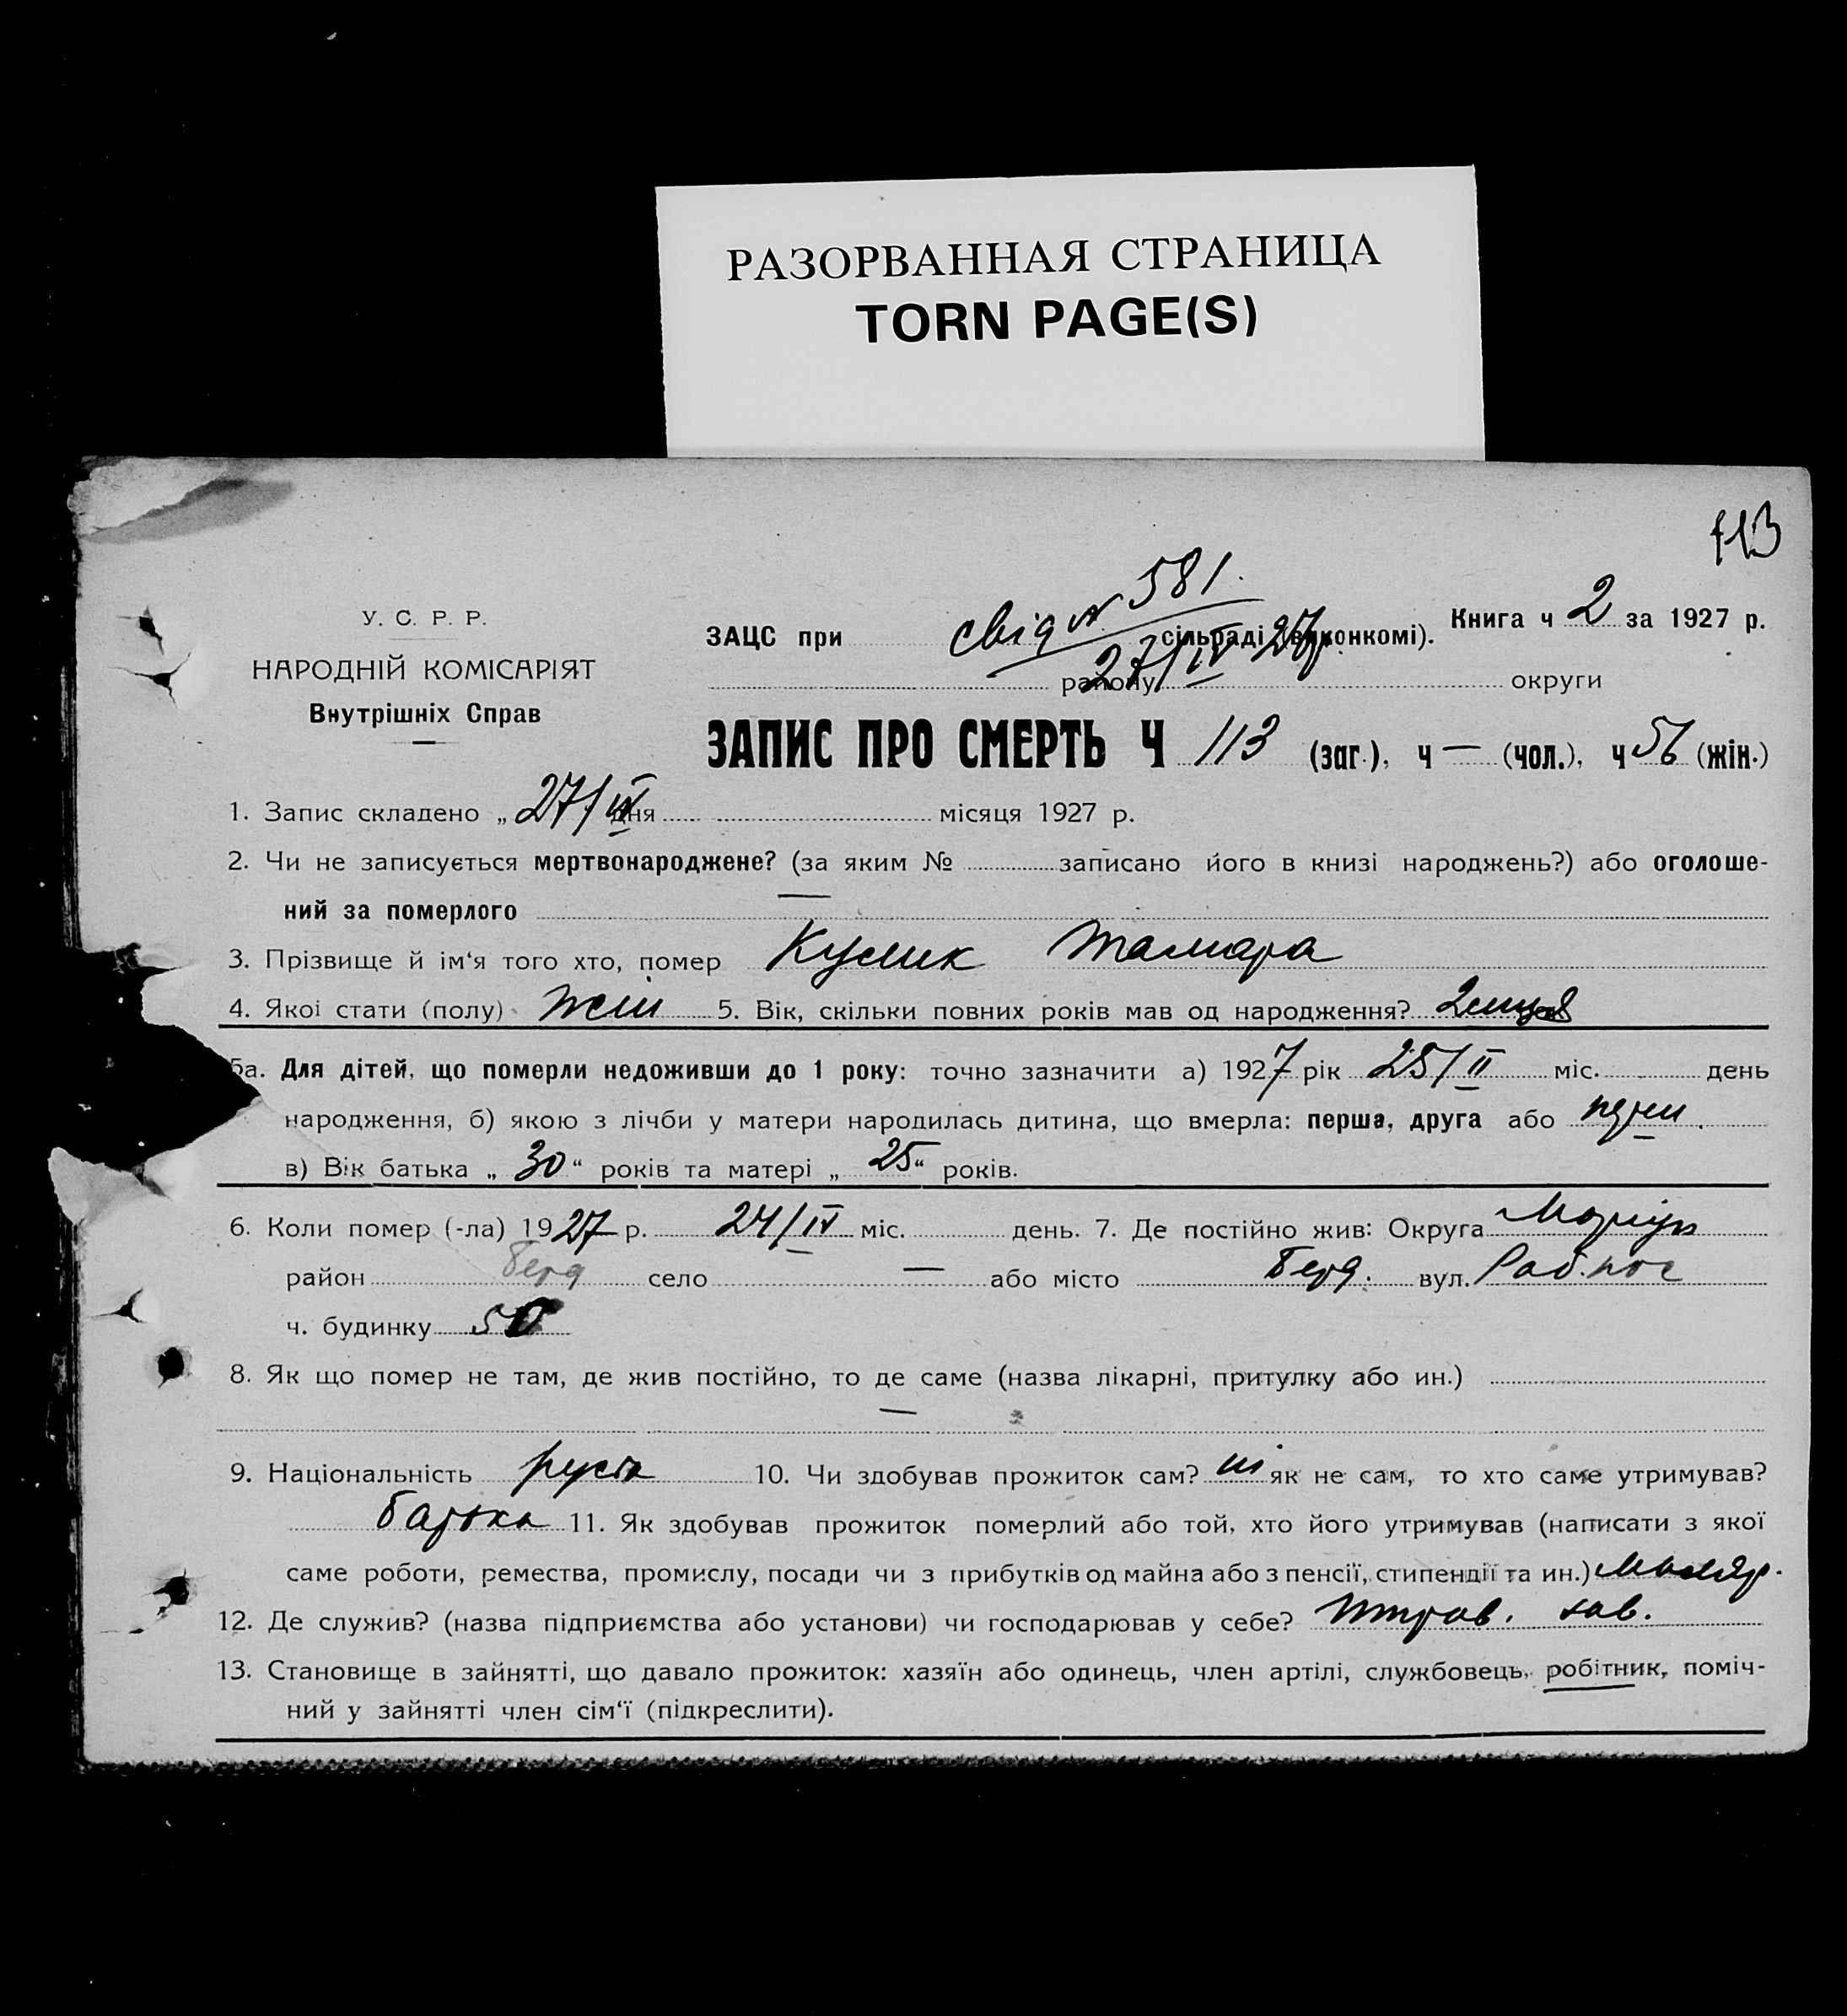 РАЗОРВАННАЯ СТРАНИЦА
TORN PAGE(S)
113
У. С. Р. Р.
НАРОДНІЙ КОМІСАРІЯТ
Внутрішніх Справ
ЗАЦС при свід № 581. сільраді (виконкомі).
Книга ч 2 за 1927 р.
району 27/IV 27р. округи
ЗАПИС ПРО СМЕРТЬ Ч 113 (заг.), ч — (чол.), ч 56 (жін.)
1. Запис складено „ 27/IV дня місяця 1927 р.
2. Чи не записується мертвонароджене? (за яким № записано його в книзі народжень?) або оголоше-
ний за померлого —
3. Прізвище й ім‘я того хто, помер Кулик Тамара
4. Якої стати (полу) жін 5. Вік, скільки повних років мав од народження? 2
5а. Для дітей, що померли недоживши до 1 року: точно зазначити а) 1927 рік 25/II міс. день
народження, б) якою з лічби у матери народилась дитина, що вмерла: перша, друга або
в) Вік батька „ 30 “ років та матері „ 25 “ років.
6. Коли помер (-ла) 1927 р. 24/IV міс. день. 7. Де постійно жив: Округа Маріуп
район Берд село — або місто Берд. вул. Раб. пос
ч. будинку 50
8. Як що помер не там, де жив постійно, то де саме (назва лікарні, притулку або ин.)
—
9. Національність руська 10. Чи здобував прожиток сам? ні як не сам, то хто саме утримував?
батько 11. Як здобував прожиток померлий або той, хто його утримував (написати з якої
саме роботи, ремества, промислу, посади чи з прибутків од майна або з пенсії, стипендії та ин.) маляр.
12. Де служив? (назва підприємства або установи) чи господарював у себе? зав.
13. Становище в зайнятті, що давало прожиток: хазяїн або одинець, член артілі, службовець, робітник, поміч-
ний у зайнятті член сім‘ї (підкреслити).